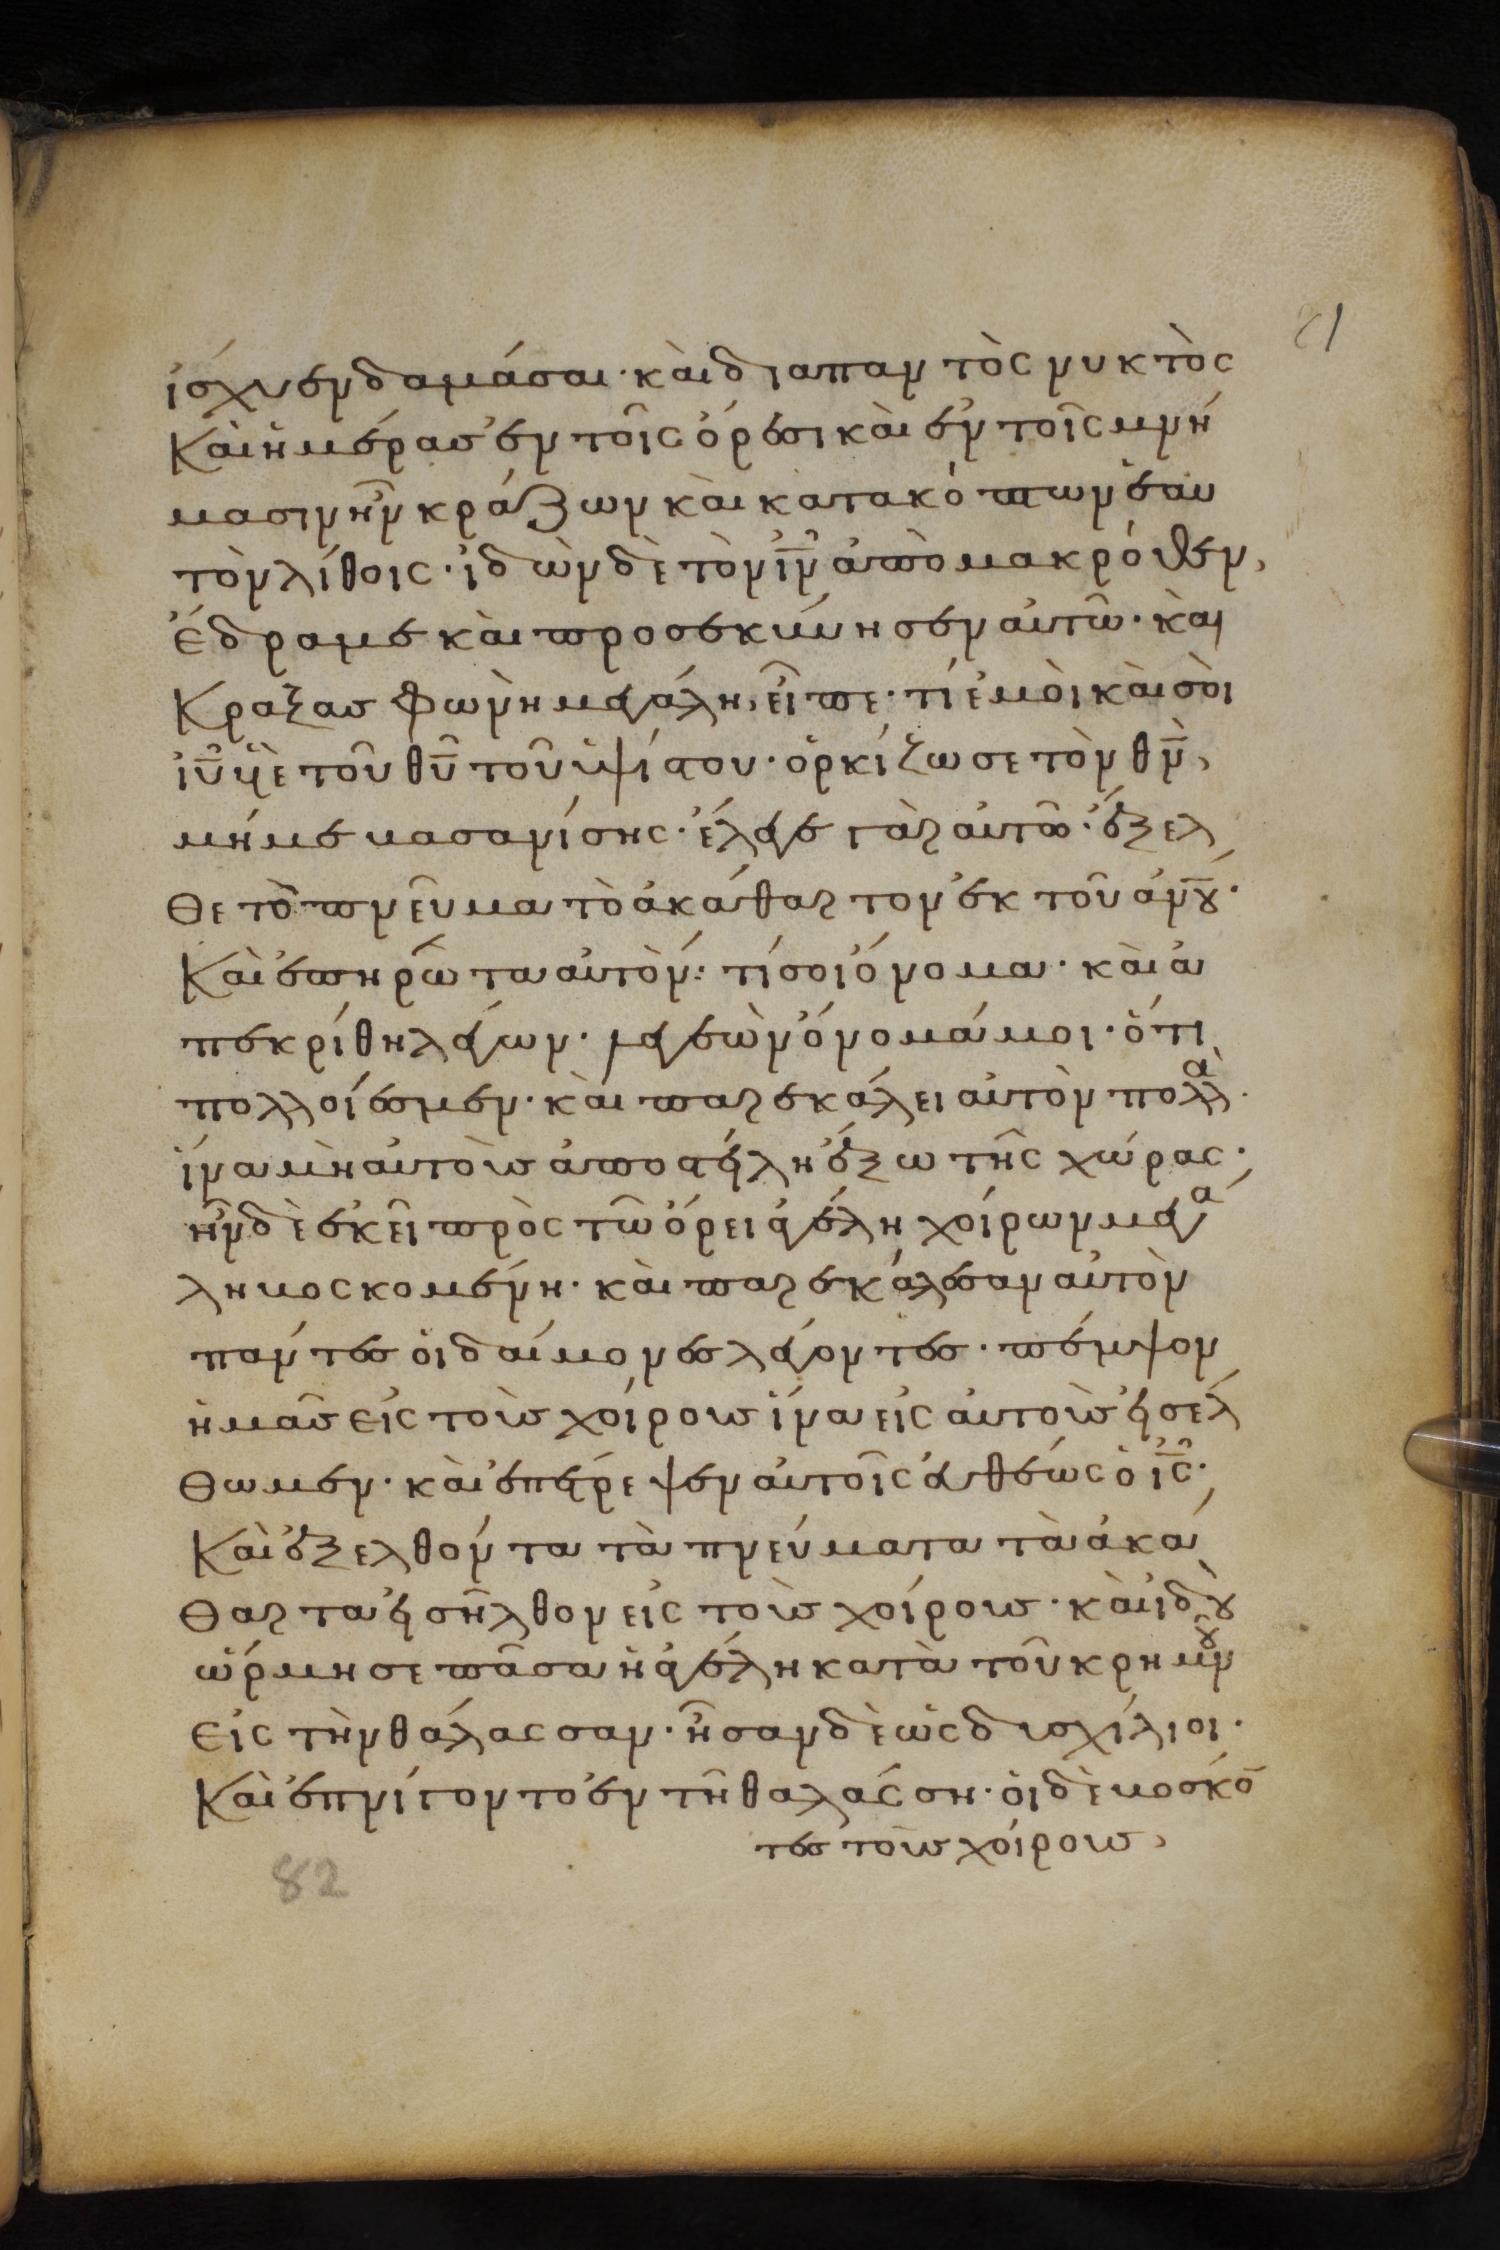 21
ἰσχυεν δαμάσαι· καὶ διαπαντὸς νυκτὸς
Καὶ ἡμέρας ἐν τοῖς ὄρεσι καὶ ἐν τοῖς μνή
μασιν ἦν κράζων καὶ κατακόπτων ἑαυ
τὸν λίθοις· ἰδὼν δὲ τὸν ἰν̅ ἀπὸ μακρόθεν,
ἔδραμε καὶ προσεκύνησεν αὐτῶ· καὶ
Κραξας φωνὴ μεγάλη, εἶπε· τί ἐμοὶ καὶ σὺ
ἰυ̅ υἱὲ τοῦ θυ̅ τοῦ ὑψίστου· ὁρκίζω σε τὸν θν̅,
μή με βασανίσης· ἔλεγε γὰρ αὐτῶ· ἔξελ
Θε τὸ πνεῦμα τὸ ἀκάθαρτον ἐκ τοῦ ἀνο̅υ·
Καὶ ἐπηρώτα αὐτόν: τί σοι ὄνομα· καὶ ἀ
πεκρίθη λέγων· λεγεὼν ὄνομά μοι· ὅτι
πολλοί ἐσμεν· καὶ παρεκάλει αὐτὸν πολλὰ·
ἵνα μὴ αὐτοὺς ἀποστείλη ἔξω τῆς χώρας·
ἦν δὲ ἐκεῖ πρὸς τῶ ὄρει ἀγέλη χοίρων μεγά
λη βοσκομένη· καὶ παρεκάλεσαν αὐτὸν
πάντες οἱ δαίμονες λέγοντες· πέμψον
ἡμᾶς εἰς τοὺς χοίρους ἵνα εἰς αὐτοὺς εἰσέλ
Θωμεν· καὶ ἐπέτρεψεν αὐτοῖς εὐθέως ὁ ἰς̅·
Καὶ ἐξελθόντα τὰ πνεύματα τὰ ἀκά
Θαρτα εἰσῆλθον εἰς τοὺς χοίρους· καὶ ἰδοὺ
ὥρμησε πᾶσα ἡ ἀγέλη κατὰ τοῦ κρημνοῦ
Εἰς τὴν θάλασσαν· ἦσαν δὲ ὡς δισχίλιοι·
Καὶ ἐπνίγοντο ἐν τῆ θαλάσση· οἱ δὲ βοσκό
τες τοὺς χοίρους,
82